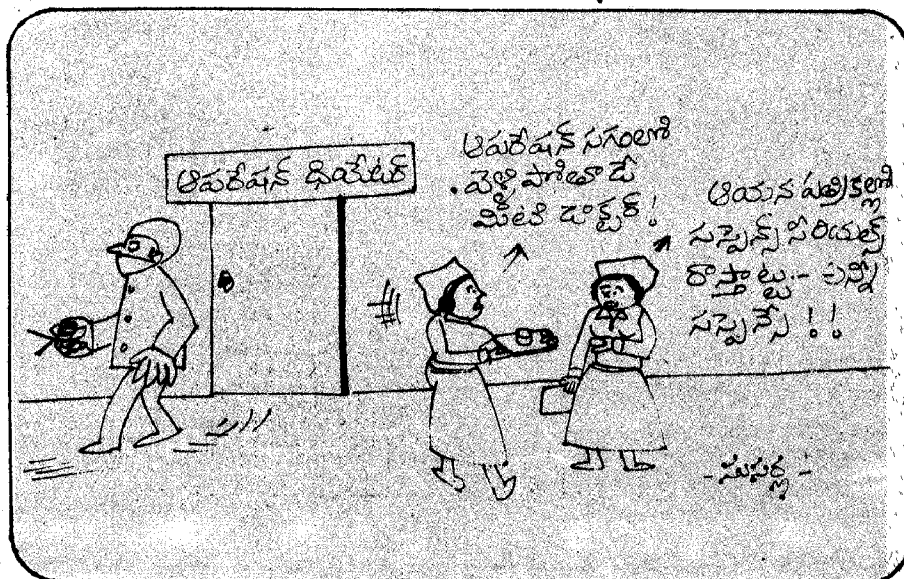 ఆపరేషన్ థియేటర్
ఆపరేషన్ సగంలో
వెళ్ళి పోతాడే
మిటి డాక్టర్!
ఆయన పత్రికల్లో
సస్పెన్స్ సీరియల్స్
రాస్తాట్ట - అన్నీ
సస్పెన్సే!!
- సుసర్ల -